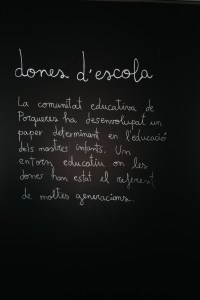 dones d'escola
La comunitat educativa de
Porqueres ha desenvolupat un
paper determinant en l'educació
dels nostres infants. Un
entorn educatiu on les
dones han estat el referent
de moltes generacions.